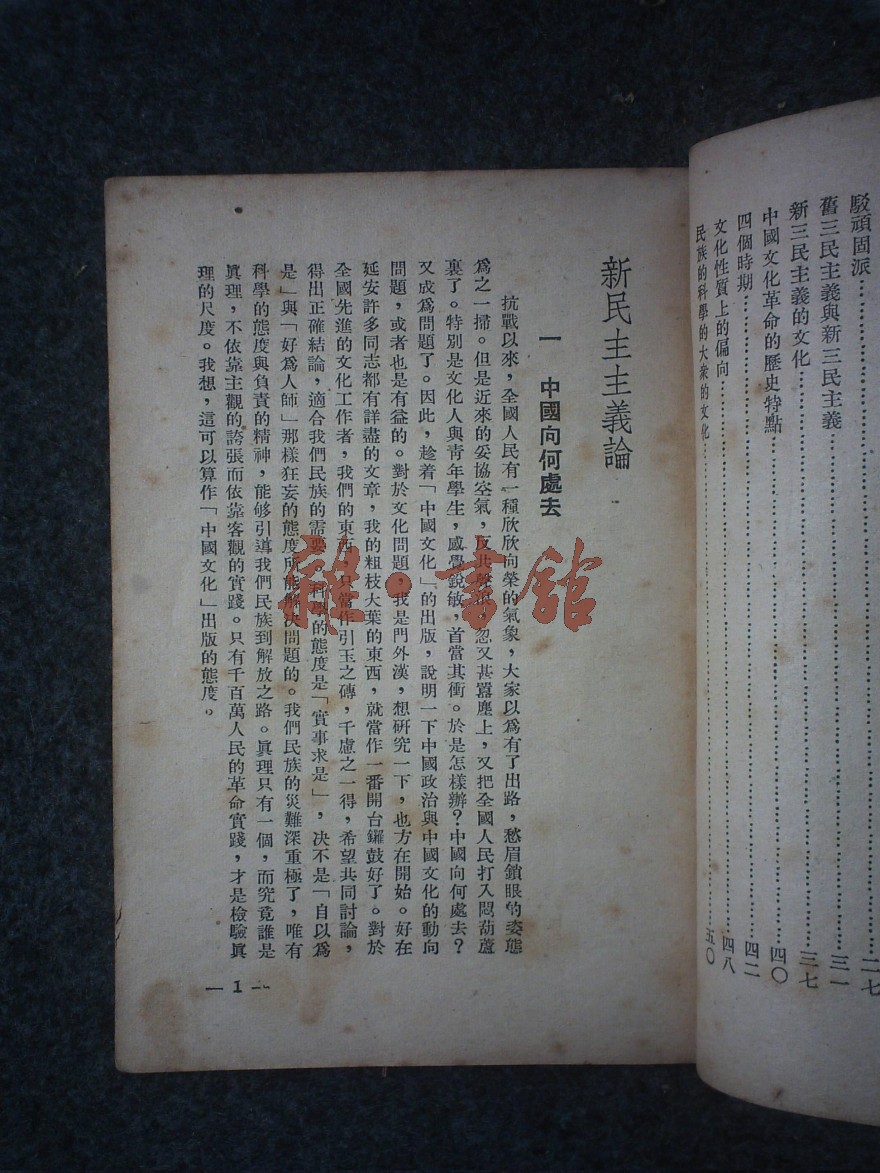 駁頑固派……二七
舊三民主義與新三民主義……三一
新三民主義的文化……三七
中國文化革命的歷史特點……四〇
四個時期……四二
文化性質上的偏向……四八
民族的科學的大衆的文化……五〇
新民主主義論
一　中國向何處去
抗戰以來，全國人民有一種欣欣向榮的氣象，大家以爲有了出路，愁眉鎖眼的姿態
爲之一掃。但是近來的妥協空氣，反共聲浪，忽又甚囂塵上，又把全國人民打入悶葫蘆
裏了。特別是文化人與靑年學生，感覺銳敏，首當其衝。於是怎樣辦？中國向何處去？
又成爲問題了。因此，趁着「中國文化」的出版，說明一下中國政治與中國文化的動向
問題，或者也是有益的。對於文化問題，我是門外漢，想研究一下，也方在開始。好在
延安許多同志都有詳盡的文章，我的粗枝大葉的東西，就當作一番開台鑼鼓好了。對於
全國先進的文化工作者，我們的東西，只當作引玉之磚，千慮之一得，希望共同討論，
得出正確結論，適合我們民族的需要。科學的態度是「實事求是」，决不是「自以爲
是」與「好爲人師」那樣狂妄的態度所能解決問題的。我們民族的災難深重極了，唯有
科學的態度與負責的精神，能够引導我們民族到解放之路。眞理只有一個，而究竟誰是
眞理，不依靠主觀的誇張而依靠客觀的實踐。只有千百萬人民的革命實踐，才是檢驗眞
理的尺度。我想，這可以算作「中國文化」出版的態度。
— 1 —
雜·書館